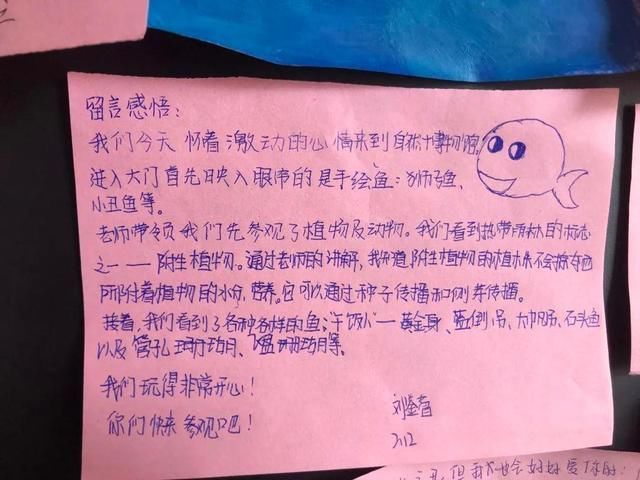 留言感悟：
我们今天怀着激动的心情来到自然博物馆。
进入大门首先映入眼帘的是手绘鱼：狮子鱼，
小丑鱼等。
老师带领我们先参观了植物及动物。我们看到热带雨林的标志
之一——附生植物。通过老师的讲解，我知道附生植物的根不会
所附着植物的水分，营养。它可以通过种子传播和侧芽传播。
接着，我们看到了各种各样的鱼：黄金身、蓝倒吊、大帆吊、石头鱼
以及管孔珊瑚、珊瑚等。
我们玩得非常开心！
你们快来参观吧！
刘
212